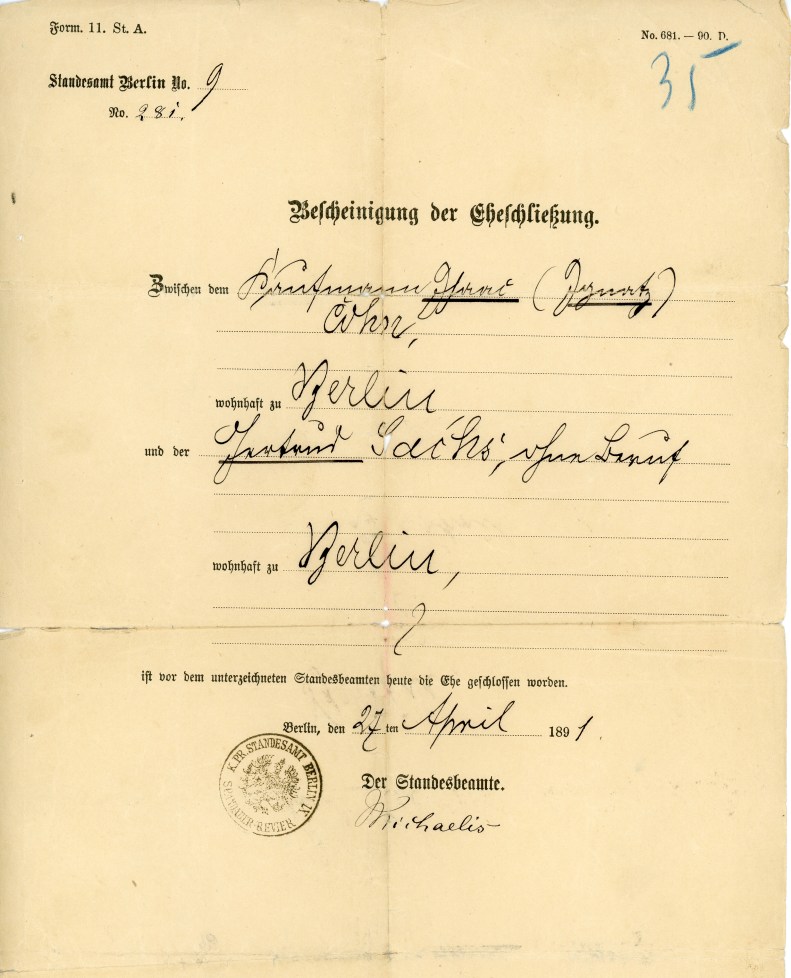 Form. 11. St. A.
No. 681. — 90. D.
35
Standesamt Berlin No. 9
No. 281.
Bescheinigung der Eheschließung.
Zwischen dem Kaufmann Isaac (Ignatz)
Cohn,
wohnhaft zu Berlin
und der Gertrud Sachs, ohne Beruf
wohnhaft zu Berlin,
ist vor dem unterzeichneten Standesbeamten heute die Ehe geschlossen worden.
Berlin, den 27ten April 1891.
K. PR. STANDESAMT BERLIN IX
SPANDAUER REVIER
Der Standesbeamte.
Michaelis